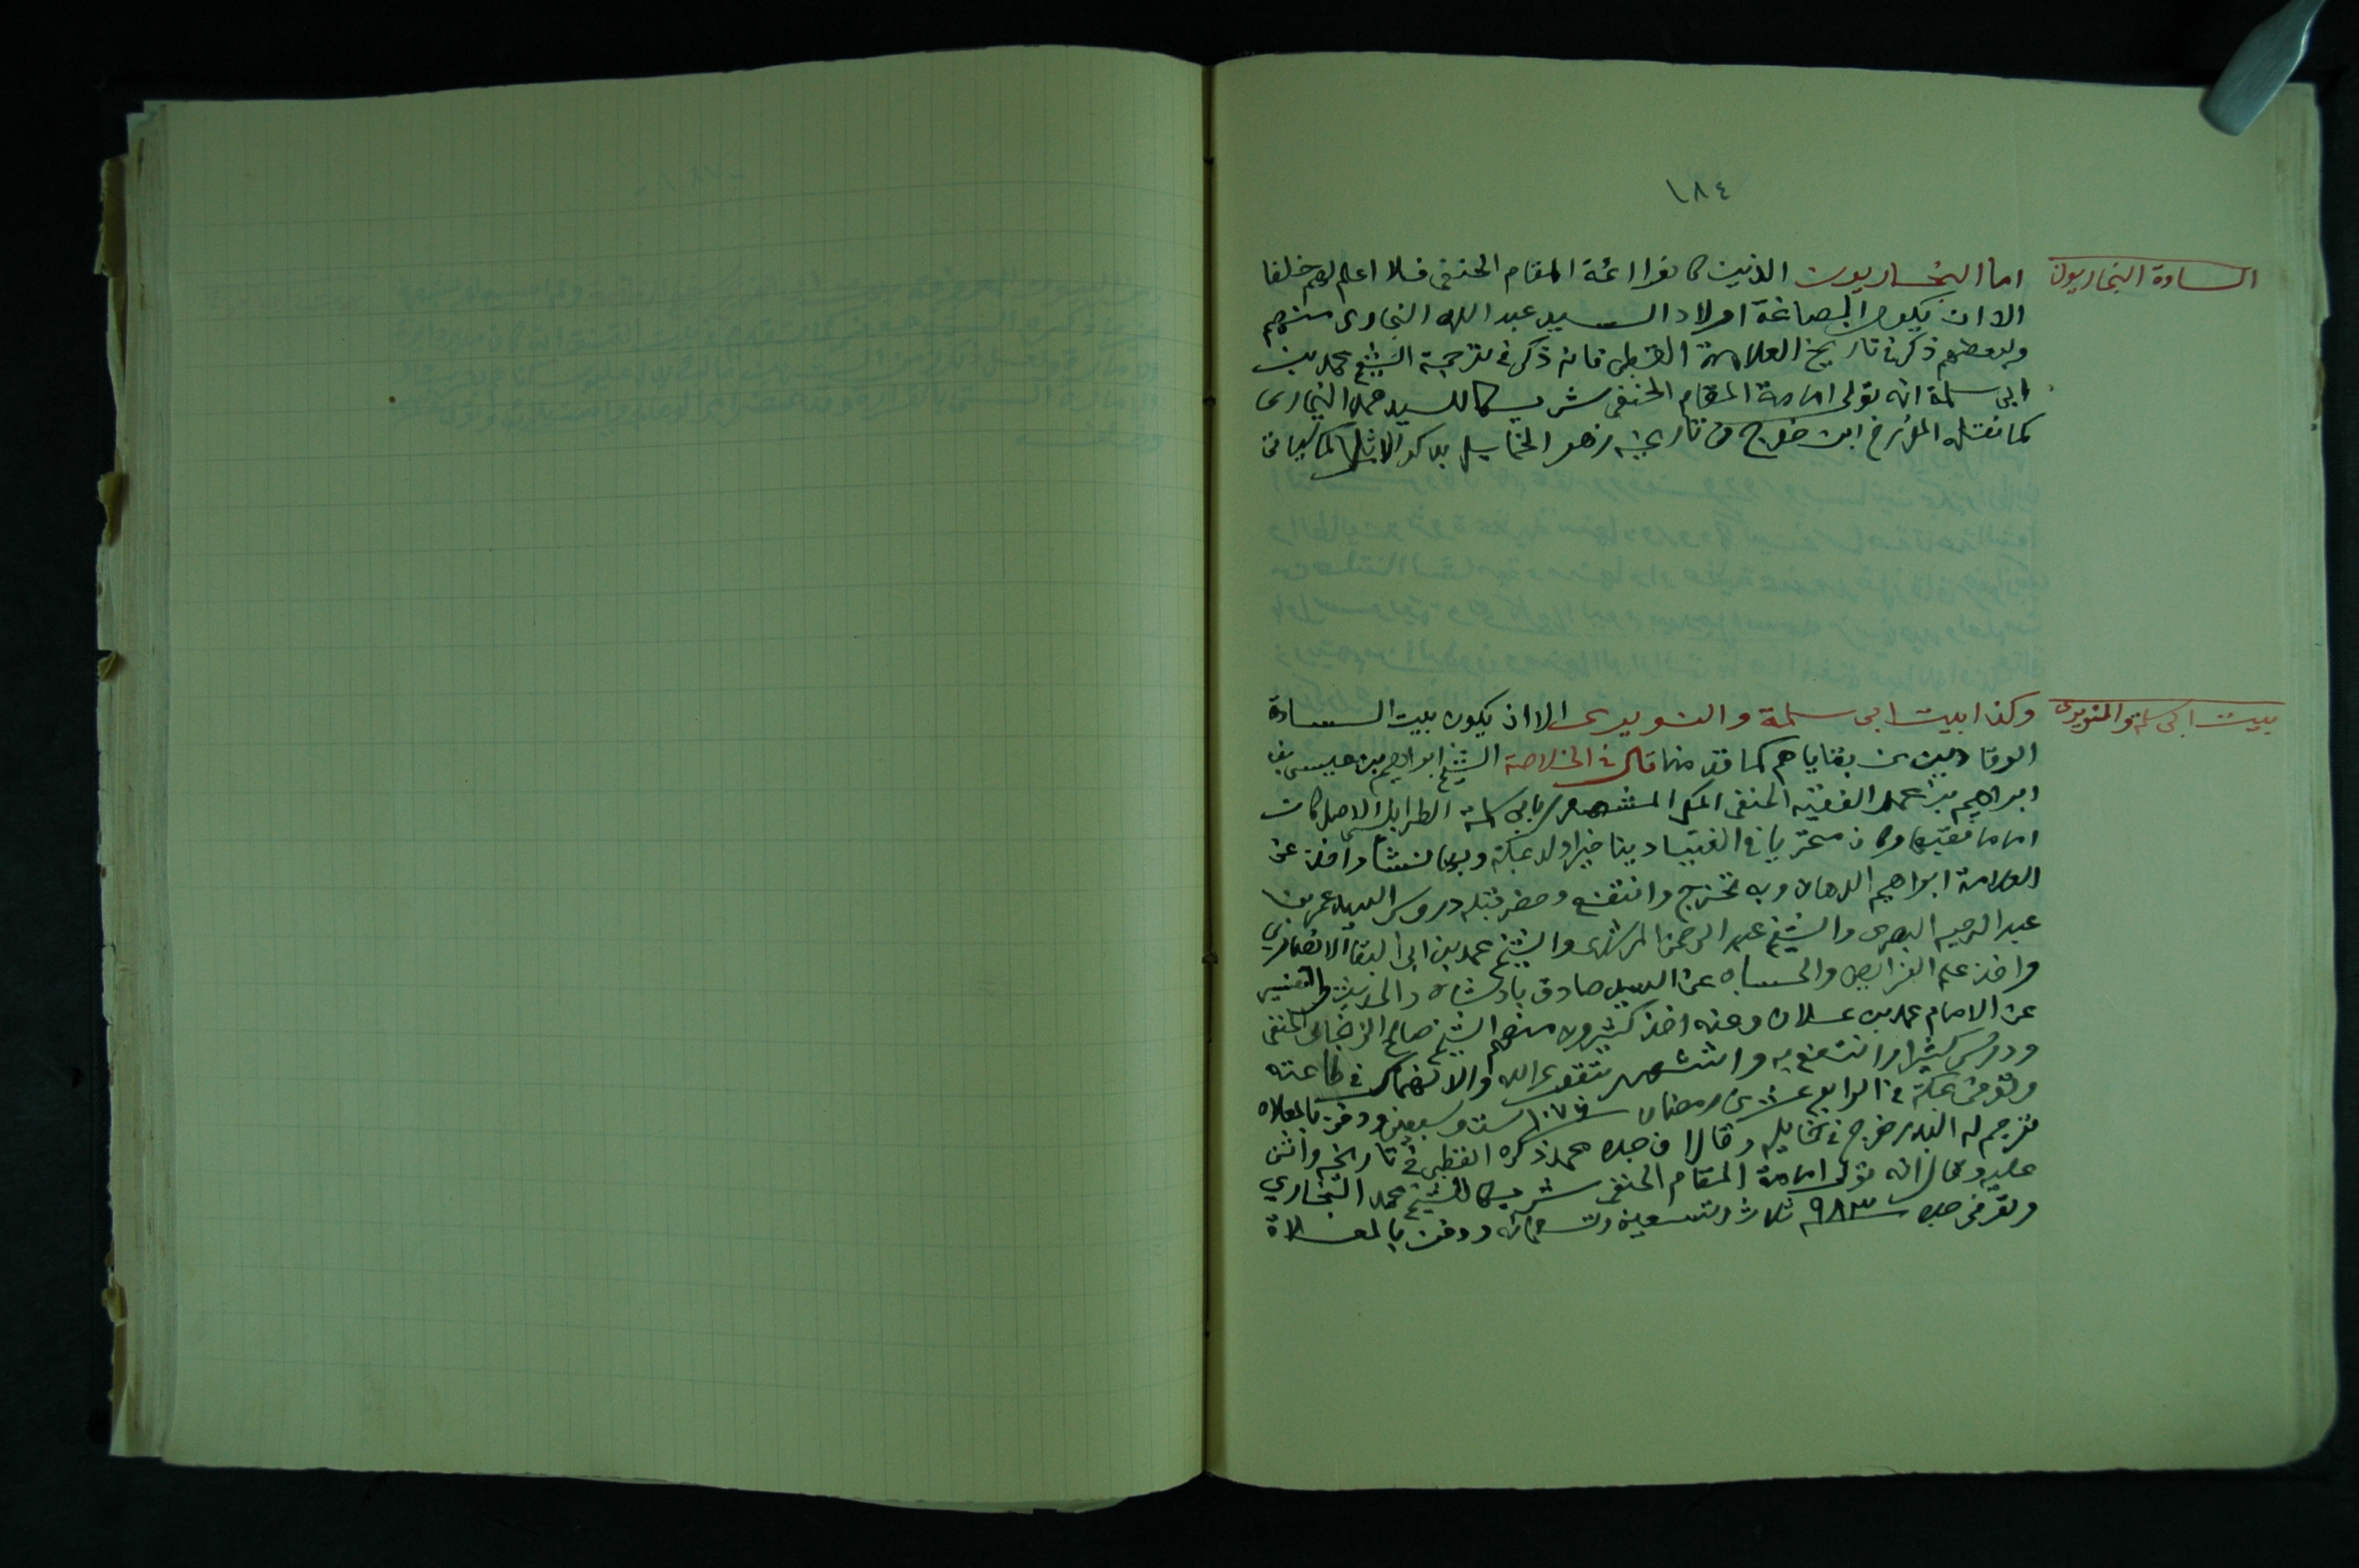 ١٨٤
السادة البخاريون
اما البخاريون الذين كانوا ائمة المقام الحنفى فلا اعلم لهم خلفا
الا ان يكون الصاغة اولاد السيد عبد الله البخارى منهم
ولبعضهم ذكر فى تاريخ العلامة القطبى فانه ذكر فى ترجمة الشيخ محمد بن
ابى سلمة انه تولى امامة المقام الحنفى شريكا للسيد محمد البخارى
كما نقله المؤرخ ابن خوج فى تاريخه زهر الخمايل بذكر
بيت ابى سلمة والنويرى
وكذا بيت ابى سلمة والنويرى الا ان يكون بيت السادة
الوقادين من بقاياهم كما قدمنا قال فى الخلاصة الشيخ ابراهيم بن عيسى بن
ابراهيم بن محمد الفقيه الحنفى المكى المشهور بابى سلمة الطرابلسى الاصل كان
اماما فقيها وكان متحريا فى الفتيا دينا خيرا ولد بمكة وبها نشأ واخذ عن
العلامة ابراهيم الدهان وبه تخرج وانتفع وحضر قبله دروس السيد عمر بن
عبد الرحيم البصرى والشيخ عبد الرحمن المرشدى والشيخ محمد بن ابى البقا الانصارى
واخذ علم الفرائض والحساب عن السيد صادق بادشاه والحديث والتفسير
عن الامام محمد بن علان وعنه اخذ كثيرون منهم الشيخ صالح الزنجانى الحنفى
ودرس كثيرا وانتفع به واشتهر بتقوى الله والانهماك فى طاعته
وتوفى بمكة فى الرابع عشر من رمضان سنة ١٠٧٦ ست وسبعين ودفن بالمعلاه
ترجم له البدر خوج فى خمايله وقال ان جده محمد ذكره القطبى فى تاريخه واثنى
عليه وقال انه تولى امامة المقام الحنفى شريكا للشيخ محمد البخاري
وتوفى جده سنة ٩٨٣ ثلاث وتسعين وتسعمائه ودفن بالمعلاة